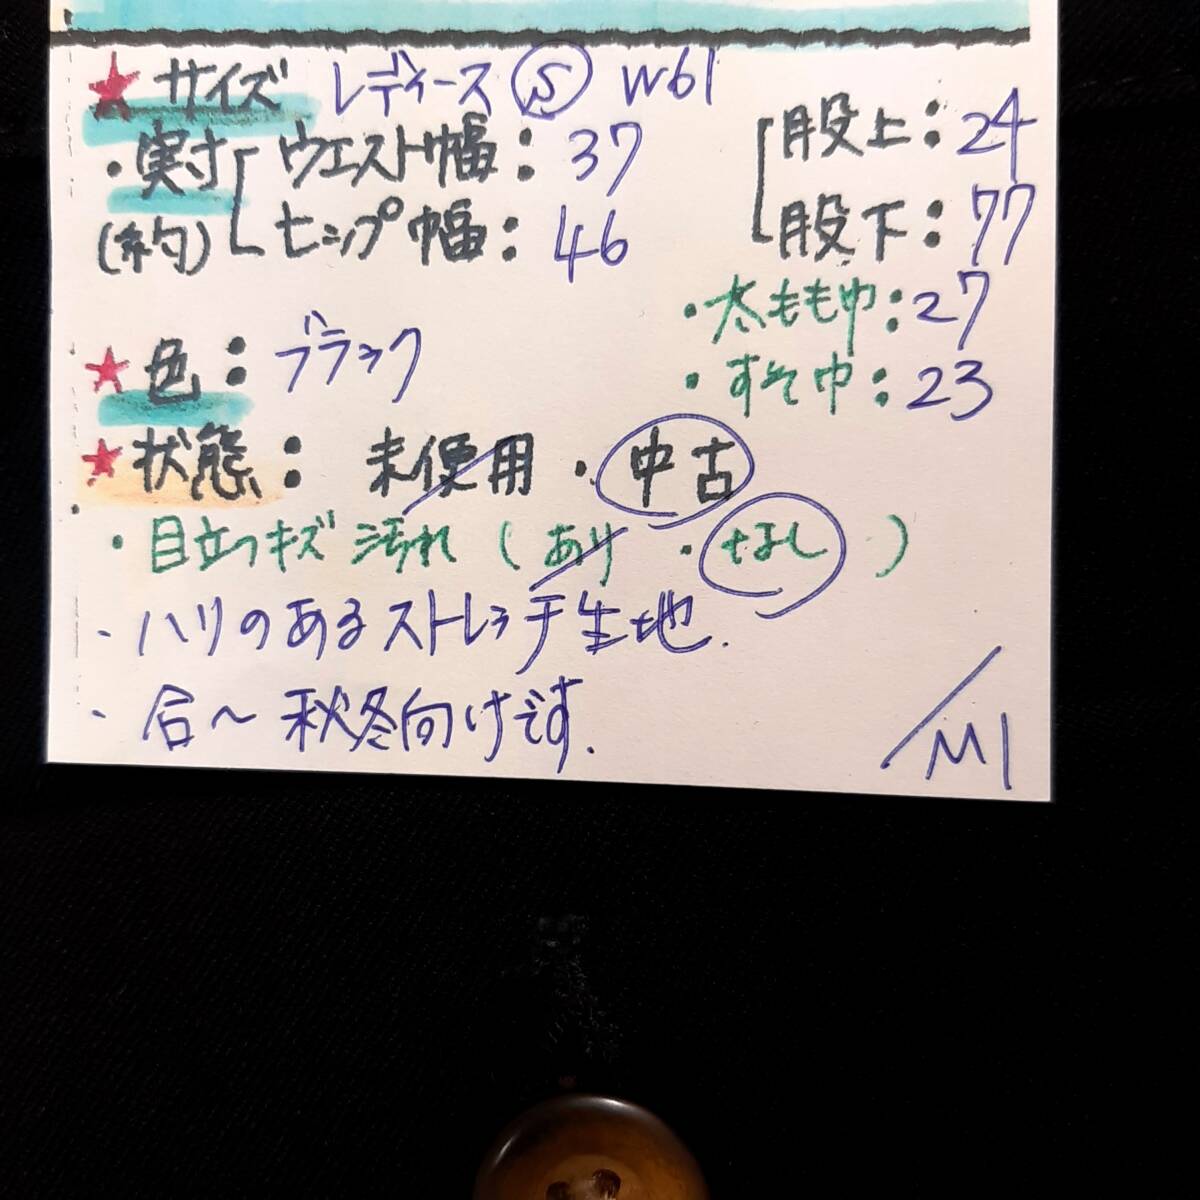 ★サイズ レディース Ⓢ W61
・実寸 ウエスト幅:37
(約) ヒップ幅:46
股上:24
股下:77
・太もも巾:27
・すそ巾:23
★色:ブラック
★状態: 未使用・中古
・目立つキズ汚れ(あり・なし)
- ハリのあるストレッチ生地.
- 合〜秋冬向けです.
/M1